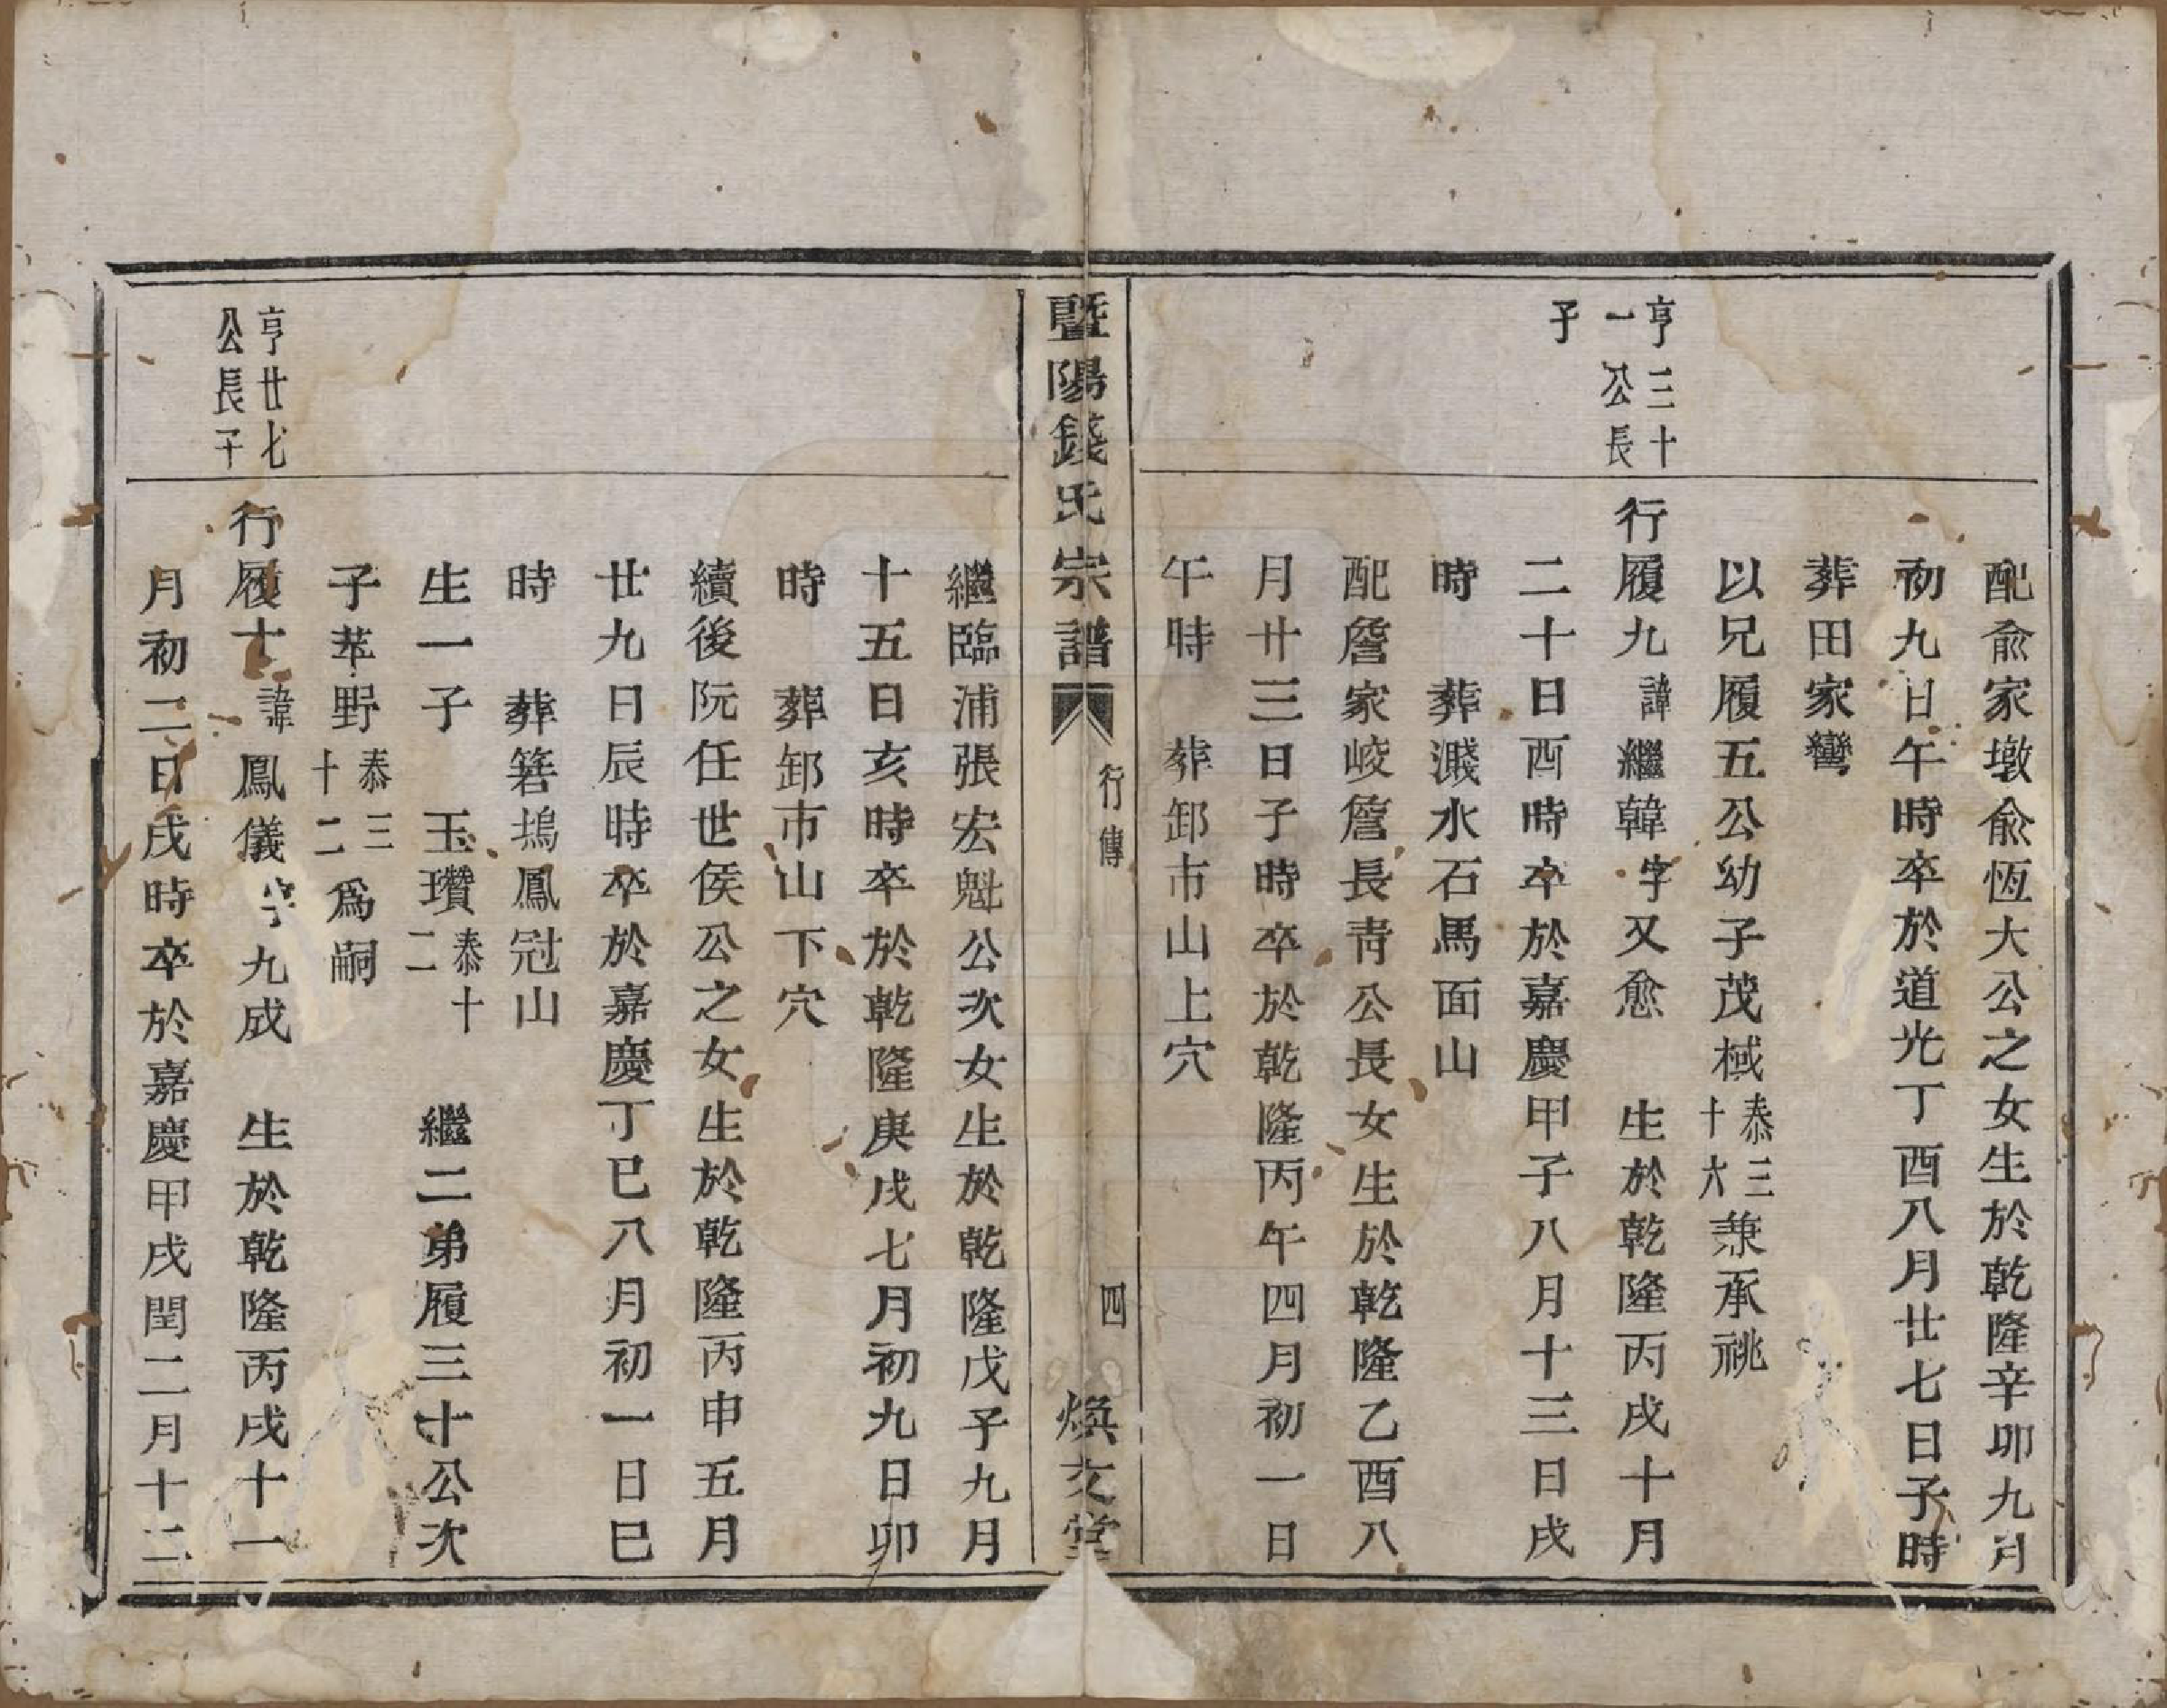 配俞家墩俞恆大公之女生於乾隆辛卯九月
初九日午時卒於道光丁酉八月廿七日子時
葬田家彎
以兄履五公幼子茂棫泰三十六兼承祧
亨三十一公長子
行履九諱繼韓字又愈　生於乾隆丙戌十月
二十日酉時卒於嘉慶甲子八月十三日戌
時　葬濺水石馬面山
配詹家崚詹長青公長女生於乾隆乙酉八
月廿三日子時卒於乾隆丙午四月初一日
午時　葬卸市山上穴
暨陽錢氏宗譜　行傳　四　煥文堂
繼臨浦張宏魁公次女生於乾隆戊子九月
十五日亥時卒於乾隆庚戌七月初九日卯
時　葬卸市山下穴
續後阮任世侯公之女生於乾隆丙申五月
廿九日辰時卒於嘉慶丁巳八月初一日巳
時　葬箬塢鳳冠山
生一子　玉瓚泰十二　繼二弟履三十公次
子苹野泰三十二爲嗣
亨廿七公長子
行履十諱鳳儀字九成　生於乾隆丙戌十一
月初二日戌時卒於嘉慶甲戌閏二月十二